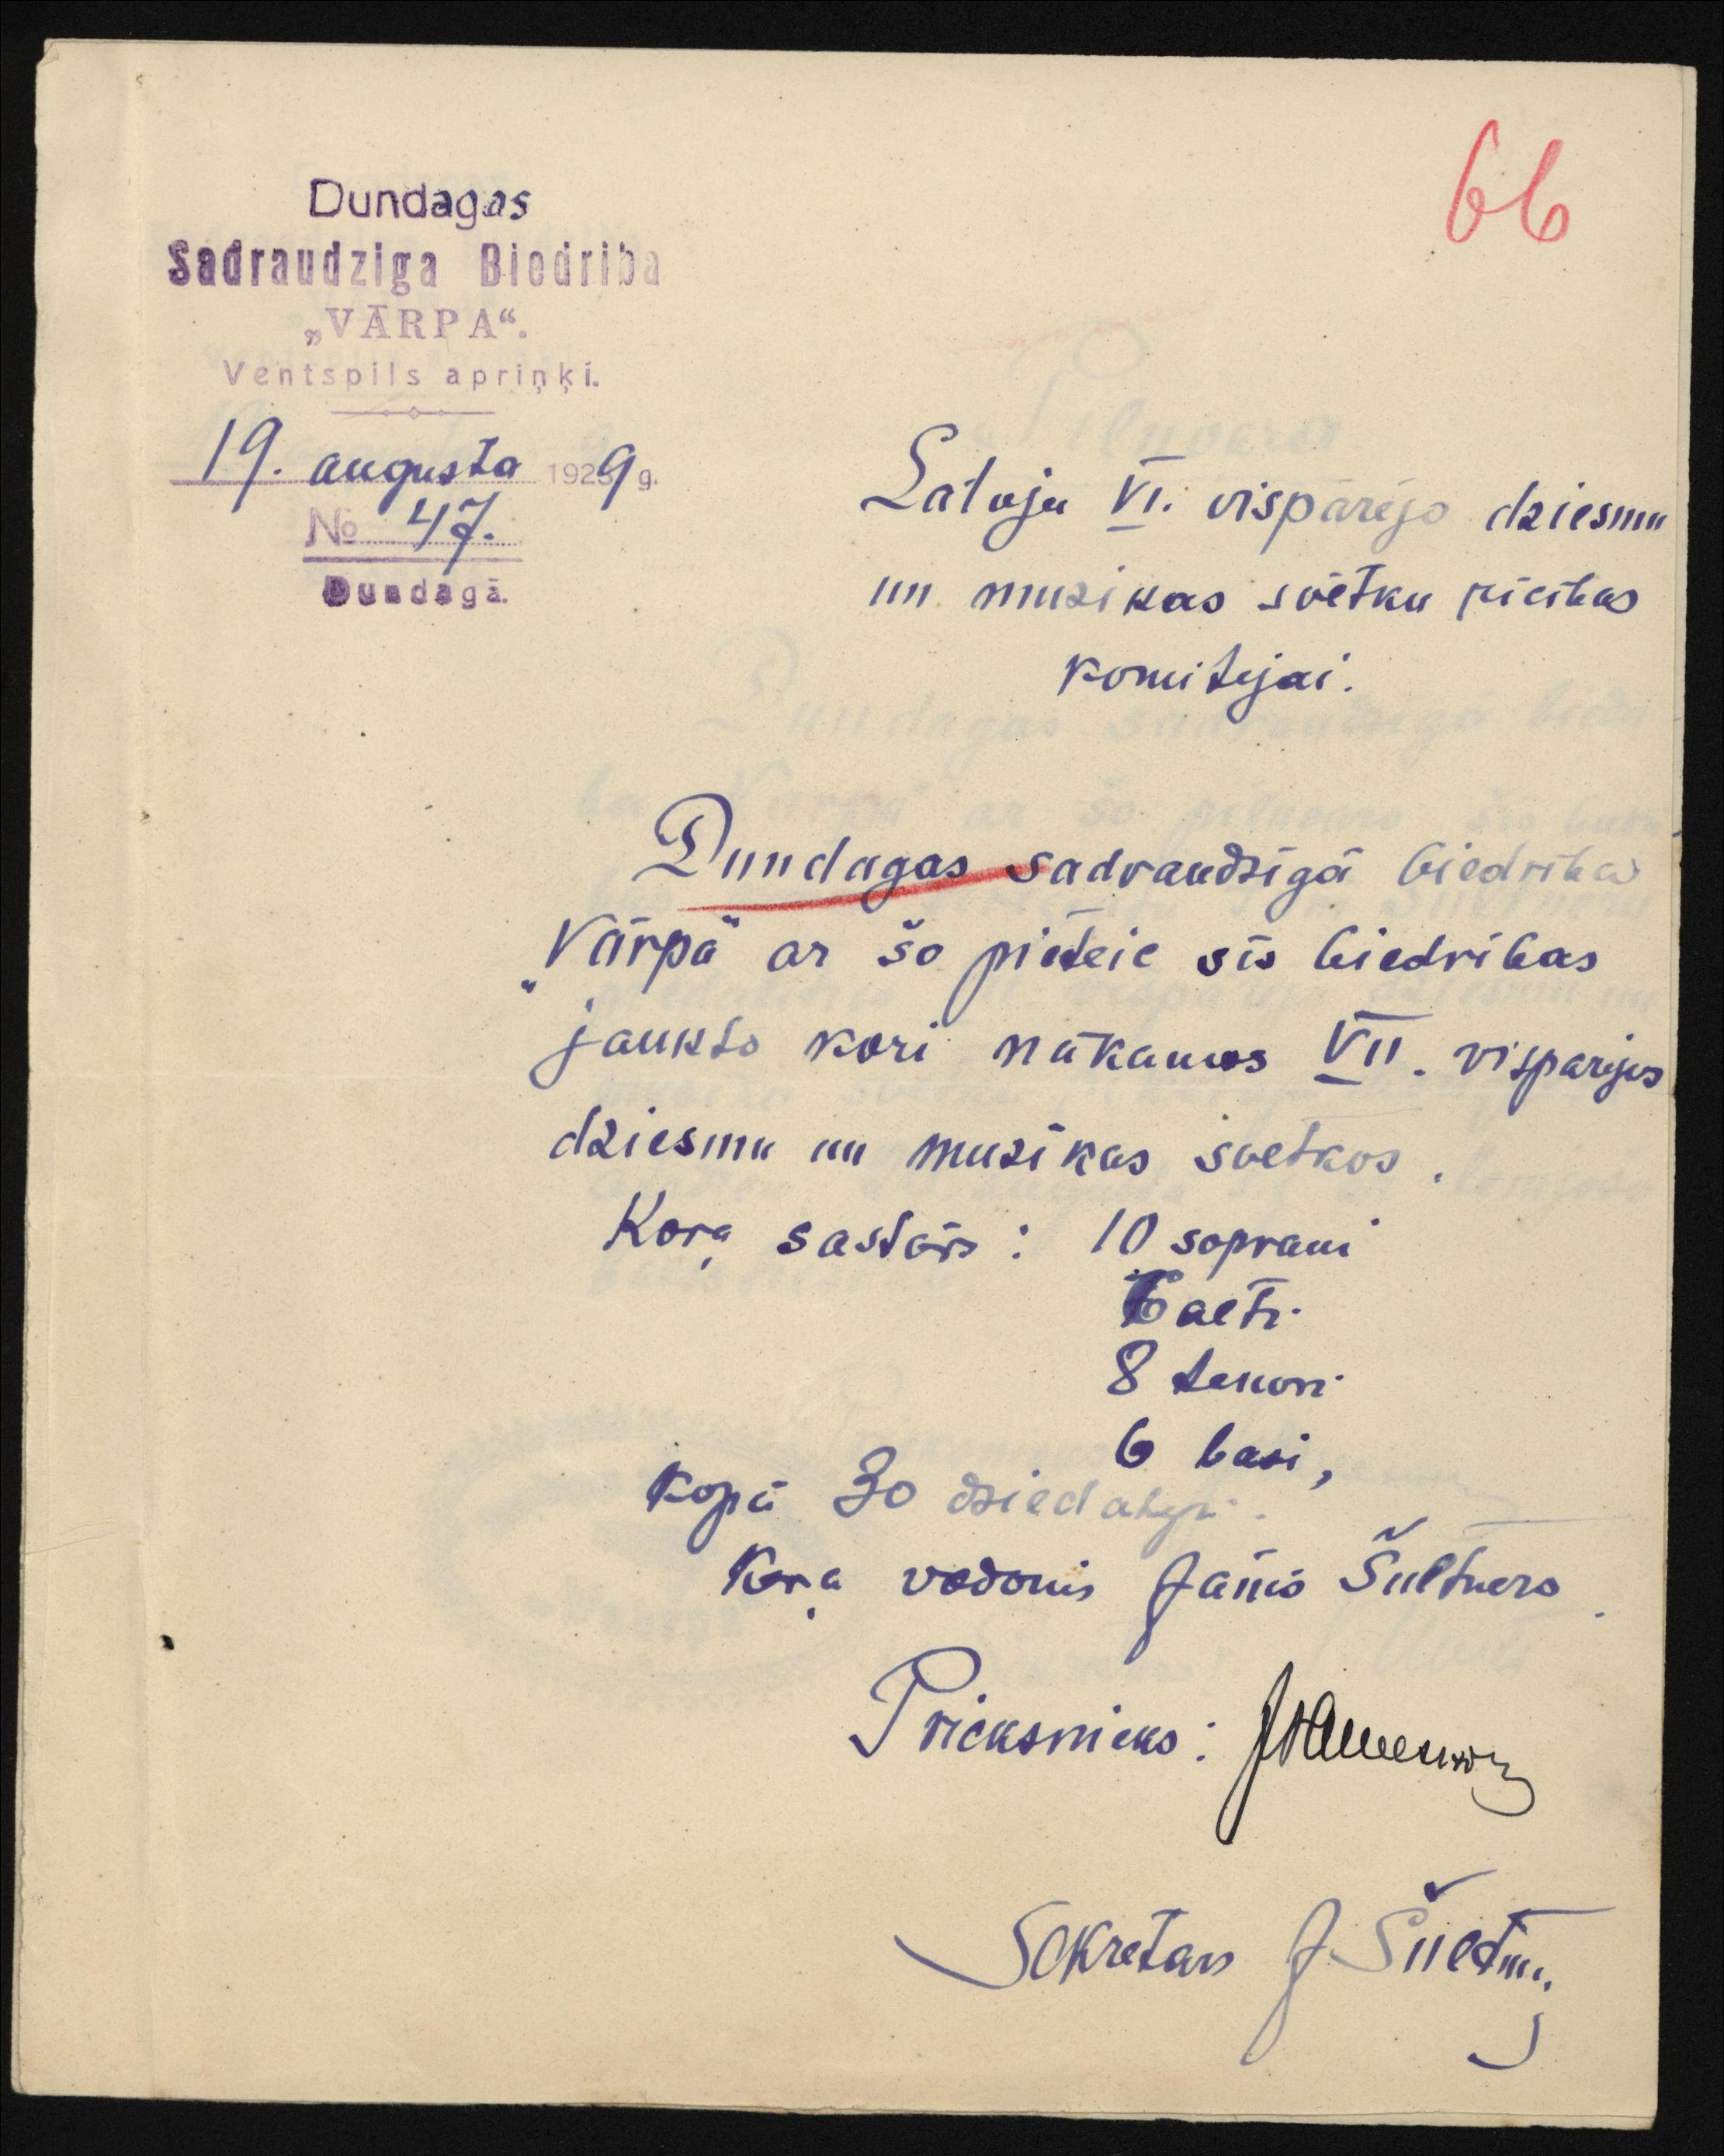 66
Dundagas
Sadraudziga Biedriba
„VĀRPA“.
Ventspils apriņķi.
19. augusta 1929 g.
No 47.
Dundagā.
Latvju VI. vispārējo dziesmu
un muzikas svētku rīcības
komitejai.
Dundagas sadraudzīgā biedrība
„Vārpa“ ar šo pieteic šīs biedrības
jaukto kori nākamos VII. vispārejos
dziesmu un muzikas svētkos.
Koŗa sastāvs: 10 soprani
6 alti
8 tenori
6 basi,
kopā 30 dziedātāji.
Koŗa vadonis Jānis Šultners.
Priekšnieks:
Sekretārs J. Šultners